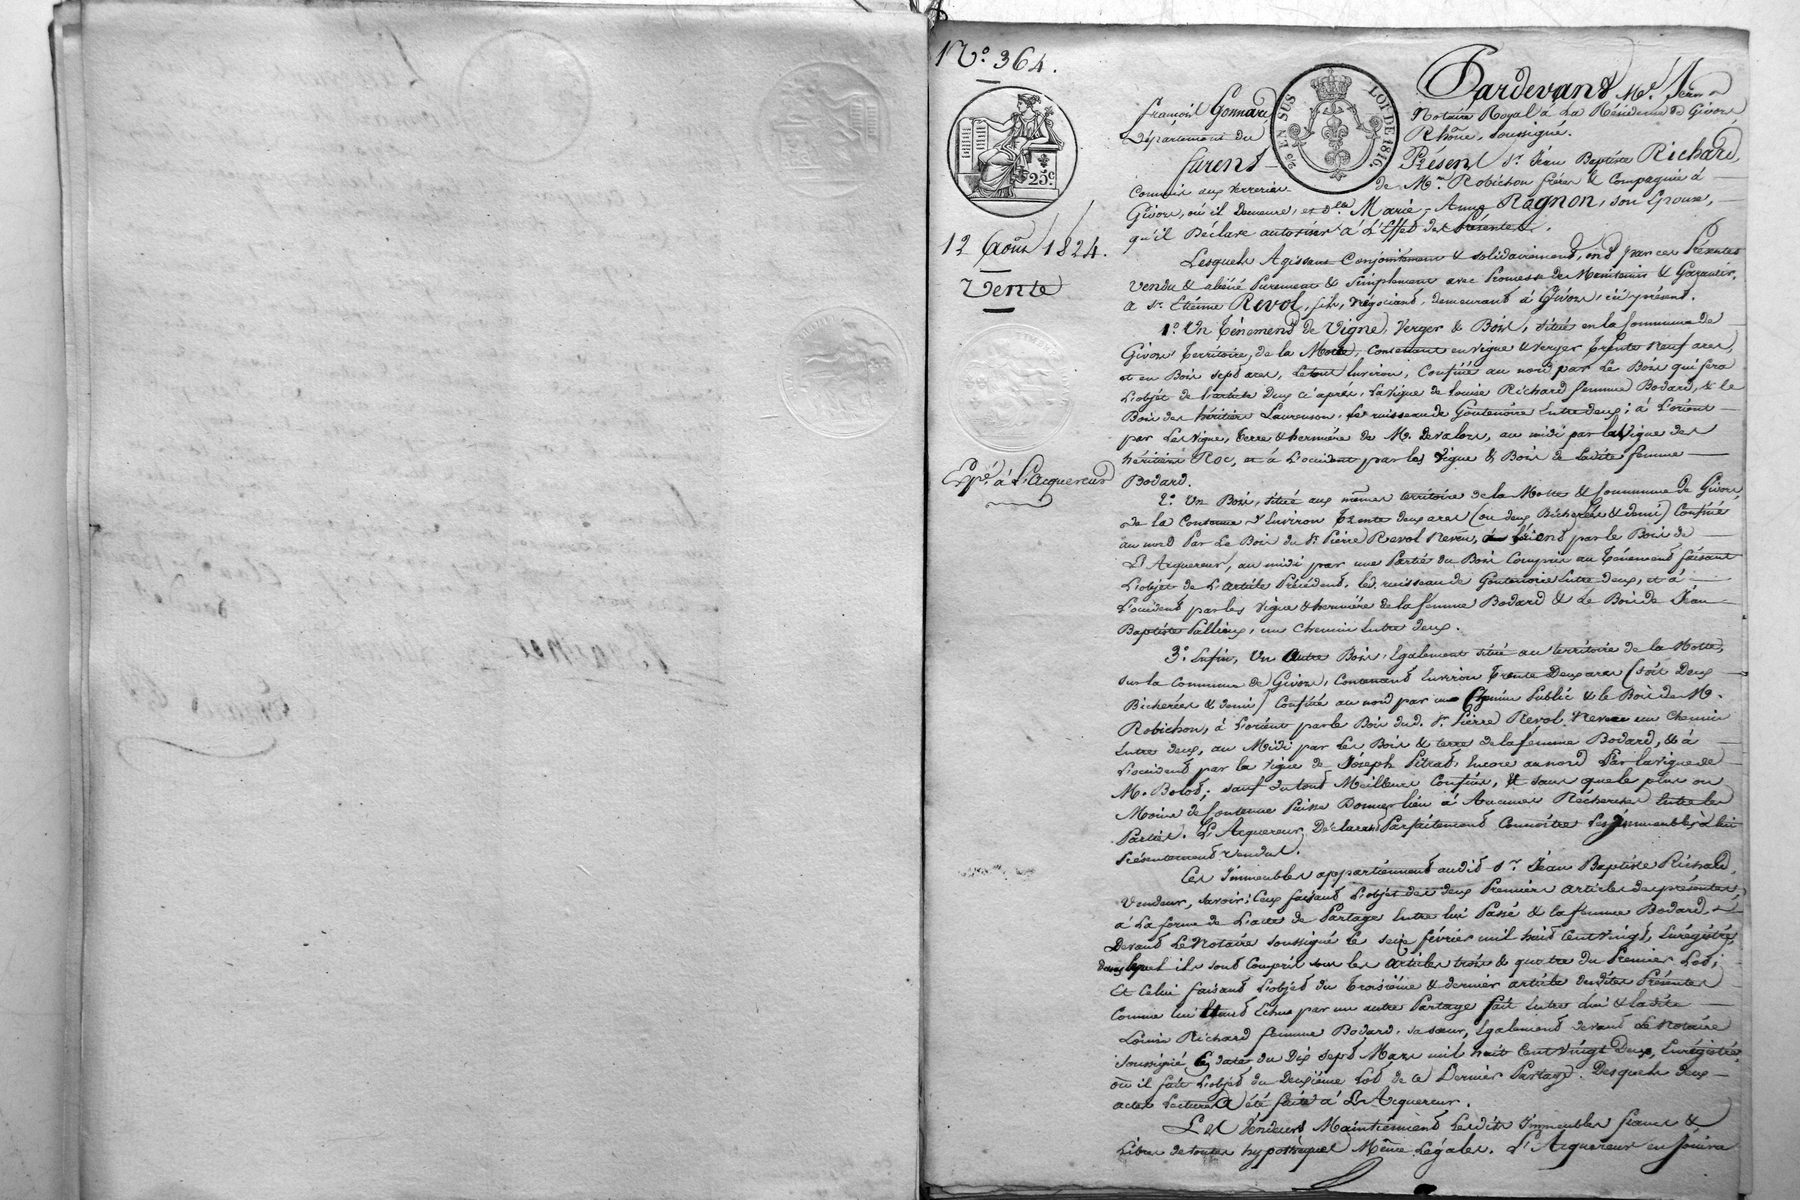 N.° 364.
25 c
12 Août 1824.
Vente
Expé. à L'Acquereur
EN SUS
LOI DE 1816
Pardevant Me. Jean
françois Gonnard Notaire Royal à La Résidence de Givors,
Département du Rhône, soussigné.
furent Présent Sr. Jean Baptiste Richard,
Commis aux Verreries de Mrs. Robichon frères & Compagnie à
Givors, où il Demeure, et dlle. Marie-Anne Ragnon, son Epouse,
qu'il Déclare autoriser à L'Effet des Présentes.
Lesquels Agissant Conjointement & solidairement, ont par ces Présentes
Vendu & aliéné Purement & Simplement avec Promesse de Maintenir & Garantir,
a Sr. Etienne Revol, fils, Négociant, demeurant à Givors, ici présent.
1.° Un Ténement de Vigne, Verger & Bois, situé en la Commune de
Givors Territoire, de la Motte, Contenant en vigne & verger Trente Neuf ares,
et en Bois sept ares, Letout Environ, Confiné au nord par Le Bois qui fera
L'objet de L'article deux ci après, La Vigne de Louise Richard femme Bodard, & le
Bois des héritiers Laurenson, Le ruisseau de Goutenoire Entre deux; à L'orient
par Les Vigne, Terre & hermière de M. Devalors, au midi par la Vigne des
héritiers Roc, et à L'occident par les Vigne & Bois de Ladite femme
Bodard.
2.° Un Bois, situé aux mêmes territoire de la Motte & Commune de Givors,
de la Contenue d'Environ Trente deux ares (ou deux Bicherées & demi) Confiné
au nord Par Le Bois du Sr. Pierre Revol Neveu, à L'orient par le Bois de
L'Acquereur, au midi par une Partie du Bois Compris au Ténement faisant
L'objet de L'article Précédent, Le ruisseau de Goutenoire Entre deux, et à
L'occident par les Vigne & hermière de la femme Bodard & Le Bois de Jean
Baptiste Pallioux, un Chemin Entre deux.
3.° Enfin, Un Autre Bois, Egalement situé au territoire de la Motte,
sur la Commune de Givors, Contenant Environ Trente Deux ares (soit Deux
Bicherées & demi) Confiné au nord par un Chemin Public & le Bois de M.
Robichon, à L'orient par le Bois dud. Sr. Pierre Revol Neveu un Chemin
Entre deux, au Midi par Les Bois & terre de la femme Bodard, & à
L'occident par la Vigne de Joseph Pitrat, Encore au nord Par la vigne de
M. Bolot; sauf du tout Meilleurs Confins, & sans que le plus ou
Moins de Contenue Puisse Donner lieu à Aucunes Récherches Entre les
Parties. L'Acquereur, Déclarant Parfaitement Connoître Les Immeubles à lui
Présentement Vendus.
Ces Immeubles appartiennent audit Sr. Jean Baptiste Richard,
Vendeur, savoir; Ceux faisant L'objet des deux Premiers articles des présentes,
à La forme de L'acte de Partage Entre lui Passé & la femme Bodard,
Devant Le Notaire soussigné Le seize février mil huit Cent Vingt, Enrégistré,
dans lequel ils sont Compris sous les articles trois & quatre du Premier Lot;
Et Celui faisant L'objet du Troisième & dernier article desdites Présentes
Comme lui étant Echus par un autre Partage fait Entre lui & Ladite
Louise Richard femme Bodard, sa sœur, Egalement devant Le Notaire
soussigné En date du Dix sept Mars mil huit Cent Vingt Deux, Enrégistré,
où il fait L'objet du Deuxième Lot de ce Dernier Partage. Desquels deux
actes Lecture a été faite à L'Acquereur.
Les Vendeurs Maintiennent Lesdits Immeubles francs &
Libres de toutes hypothèques Même Légales. L'Acquereur en Jouira